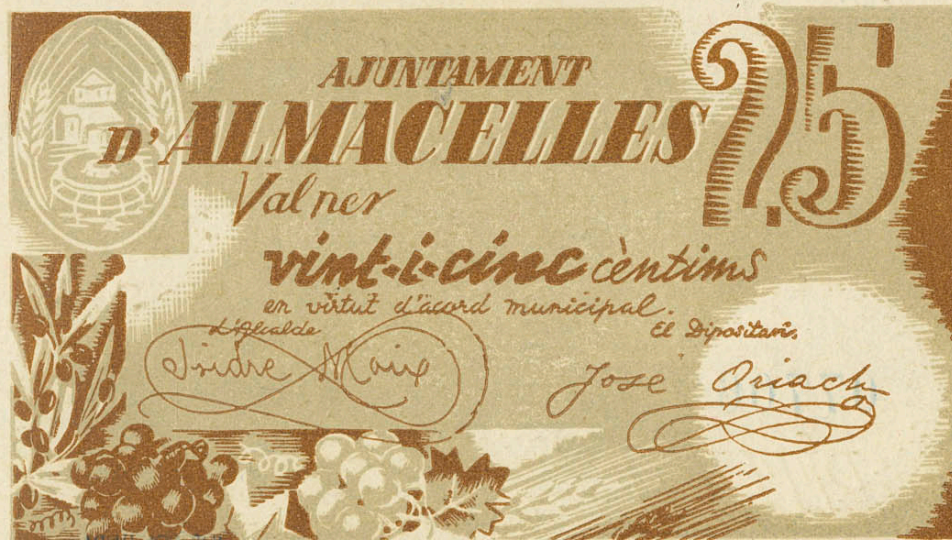 AJUNTAMENT
D'ALMACELLES
25
Val per
vint-i-cinc cèntims
en virtut d'acord municipal.
L'Alcalde
El Dipositari,
Isidre Maix
José Oriach